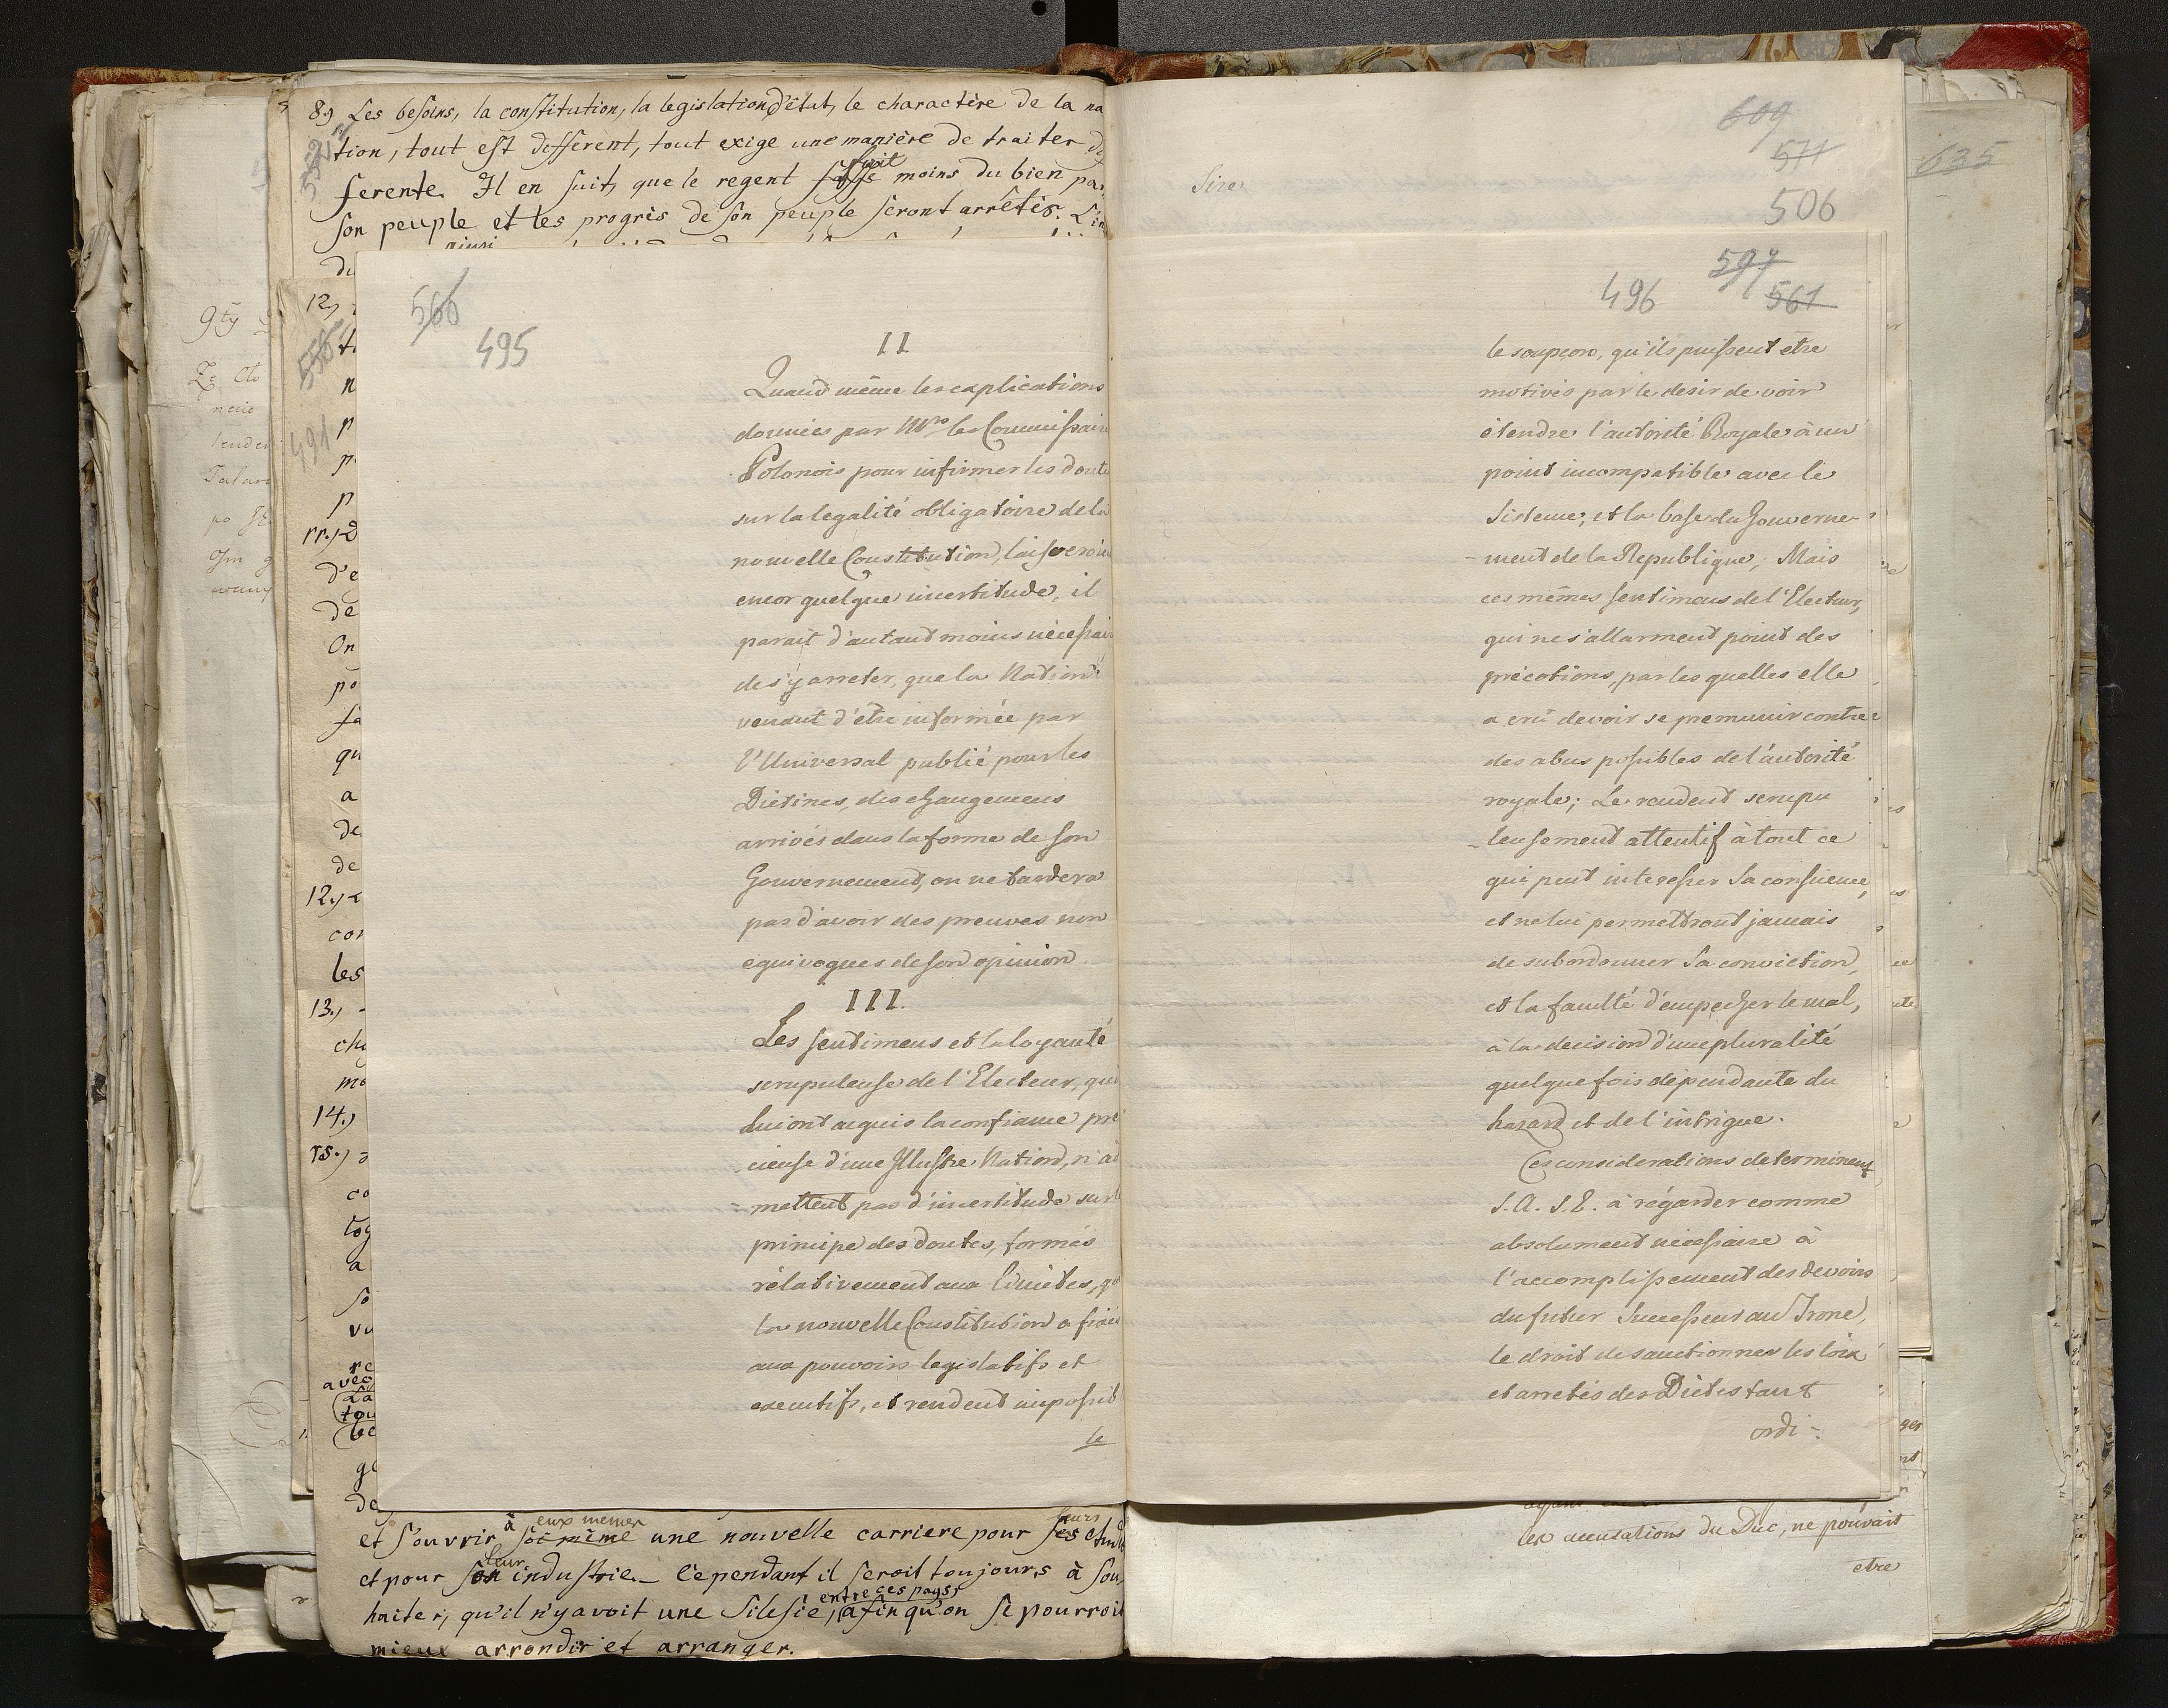 8.) Les besoins, la constitution, la legislation d'êtut, le charactère de la na
tion, tout est different, tout exige une manière de traiter di
ferente. Il en suit, que le regent fasse fait moins du bien par
son peuple et les progrès de son peuple seront arrêtés.
ainsi
12.)
11.)
d'e
de
On
po
fa
qu
a
de
de
12.)
con
les
13.)
che
mo
14.)
15.)
co
avec
tou
566
495
II
Quand même les explications
données par Mrs les Commissaire
Polonois pour infirmer les doute
sur la legalité obligatoire de la
nouvelle Constitution, laisseroie
encor quelque incertitude, il
parait d'autant moins nécessair
de s'y arreter, que la Nation
venant d'être informée par
l'Universal publié pour les
Diétines, des changemens
arrivés dans la forme de son
Gouvernement, on ne tardera
pas d'avoir des preuves non
equivoques de son opinion.
III.
Les sentimens et la loyauté
scrupuleuse de l'Electeur, qui
lui ont acquis la confiance pré
cieuse d'une Illustre Nation, n'ad
-mettent pas d'incertitude sur l
principe des doutes, formés
rélativement aux limites, que
la nouvelle Constitution a fixée
aux pouvoirs legislatifs et
executifs, et rendent impossib
le
et s'ouvrir à soi même eux memes une nouvelle carriere pour ses leurs etud
et pour son leur industrie. Cependant il seroit toujours à sou
haiter, qu'il n'y avoit une Silesie entre ces pays, afin qu'on se pourroit
mieux arrondir et arranger.
Sire
609
571
506
635
597
496
561
le soupçon, qu'ils puissent être
motivés par le desir de voir
étendre l'autorité Royale à un
point incompatible avec le
Sisteme, et la base du Gouverne-
-ment de la Republique, Mais
ces mêmes sentimens de l'Electeur,
qui ne s'allarment point des
précotions, par les quelles elle
a crû devoir se premunir contre
des abus possibles de l'autorité
royale; Le rendent scrupu
-leusement attentif à tout ce
qui peut interesser Sa consience,
et ne lui permettront jamais
de subordonner Sa conviction,
et la faculté d'empecher le mal,
à la decision d'une pluralité
quelque fois dépendante du
hazard et de l'intrigue.
Ces considerations determinent
S. A. S. E. à régarder comme
absolument nécessaire à
l'accomplissement des devoirs
du futur Successeur au Trone,
le droit de sanctionner les loix
et arretés des Diétes tant
ordi-
les accusations du Duc, ne pouvait
etre